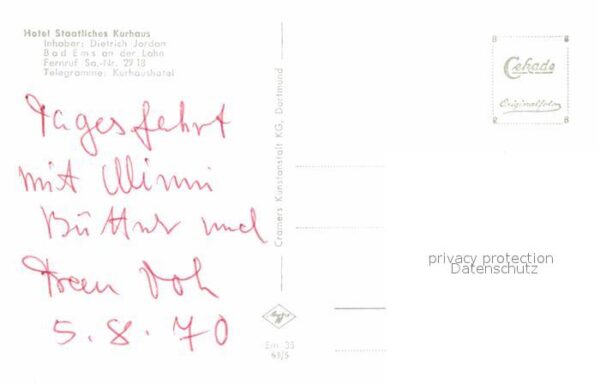 Hotel Staatliches Kurhaus
Inhaber: Dietrich Jordan
Bad Ems an der Lahn
Fernruf Sa.-Nr. 29 18
Telegramme: Kurhaushotel
Tagesfahrt
mit Minni
Büttner und
Frau
5. 8. 70
Cramers Kunstanstalt KG, Dortmund
Cekade
Originalfoto
privacy protection
Datenschutz
Em 35